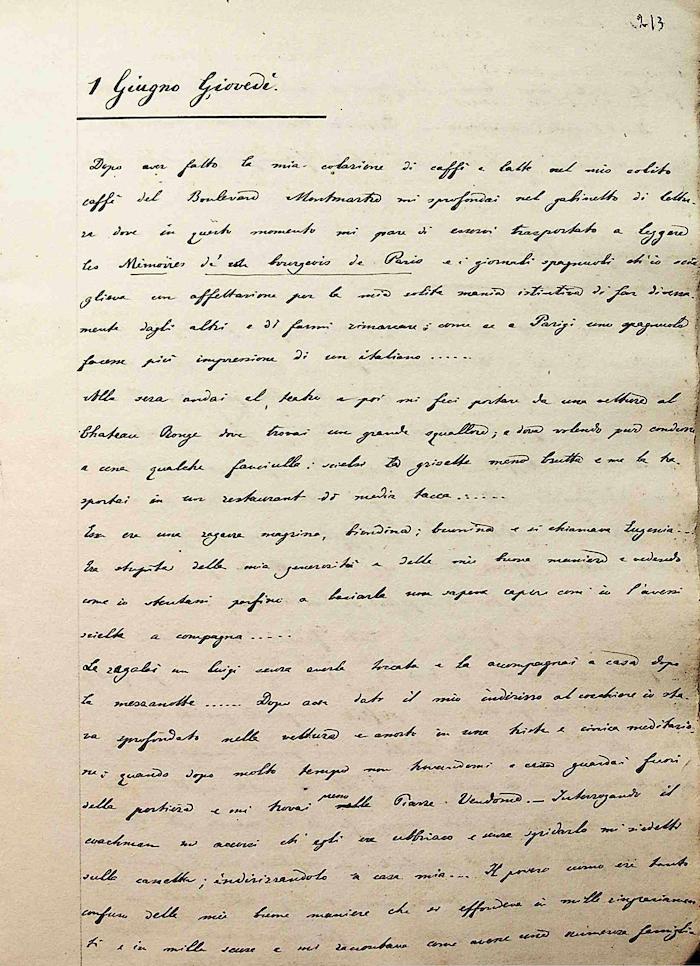 213
1 Giugno Giovedì.
Dopo aver fatto la mia colazione di caffè e latte nel mio solito
caffè del Boulevard Montmartre mi sprofondai nel gabinetto di lettu-
ra dove in questo momento mi pare di essermi trasportato a leggere
les Mémoires d'un bourgeois de Paris e i giornali spagnuoli ch'io sce-
glieva con affettazione per la mia solita mania istintiva di far diversa
mente dagli altri e di farmi rimarcare; come se a Parigi uno spagnuolo
facesse più impressione di un italiano ......
Alla sera andai al teatro e poi mi feci portare da una vettura al
Chateau Rouge dove trovai un grande squallore; e dove volendo pur condurre
a cena qualche fanciulla: scielsi la grisette meno brutta e me la tra-
sportai in un restaurant di media tacca ......
Essa era una ragazza magrina, biondina; buonina e si chiamava Eugenia...
Era stupita della mia generosità e delle mie buone maniere e vedendo
come io stentassi perfino a baciarla non sapeva capire com'io l'avessi
scielta a compagna .....
Le regalai un luigi senza averla toccata e la accompagnai a casa dopo
la mezzanotte ...... Dopo aver dato il mio indirizzo al cocchiere io sta-
va sprofondato nella vettura e assorto in una triste e cinica meditazio-
ne; quando dopo molto tempo non trovandomi a casa guardai fuori
della portiera e mi trovai presso alle Piazze Vendome. — Interrogando il
coachman mi accorsi ch'egli era ubbriaco e senza sgridarlo mi sedetti
sulla cassetta; indirizzandolo a casa mia... Il povero uomo era tanto
confuso delle mie buone maniere che si effondeva in mille ringraziamen
ti e in mille scuse e mi raccontava come avesse una numerosa famiglia